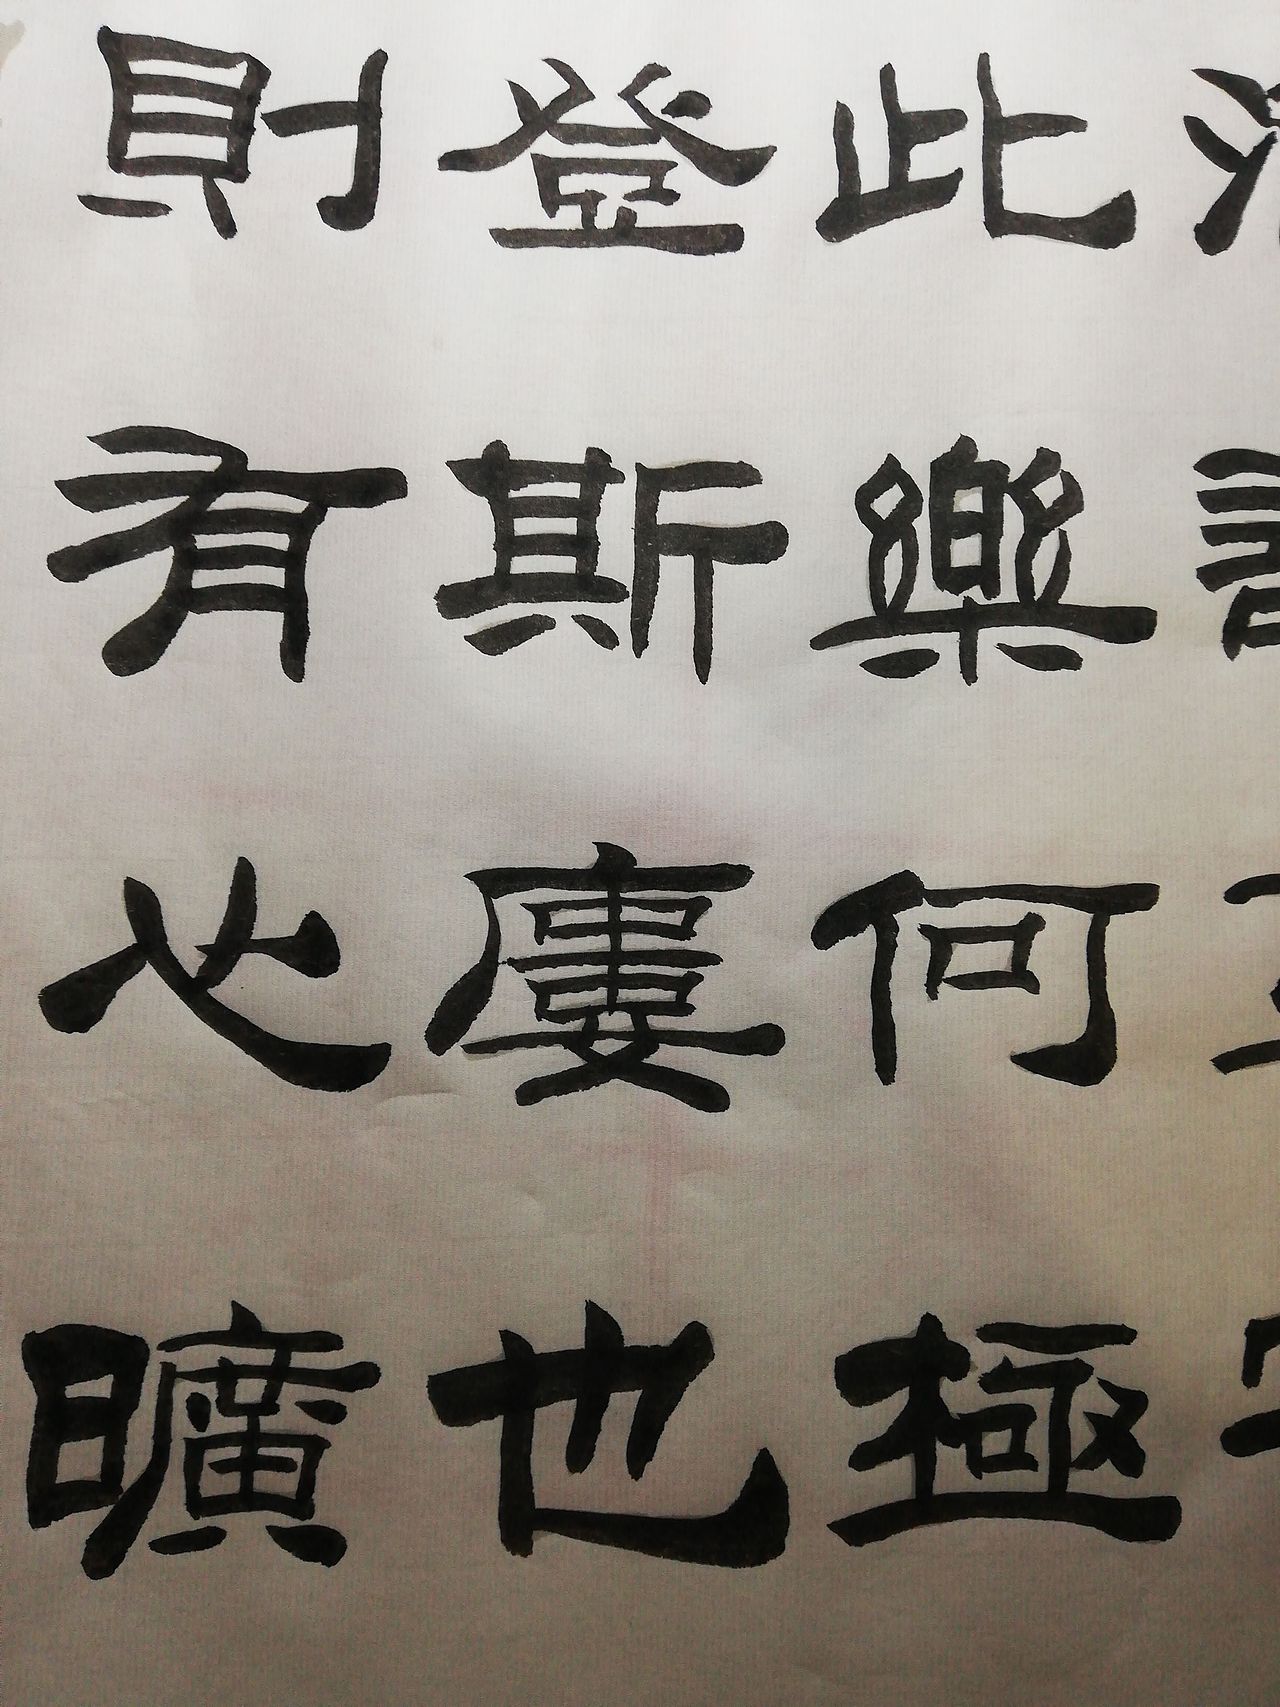 此樂何極
登斯廔也
則有心曠